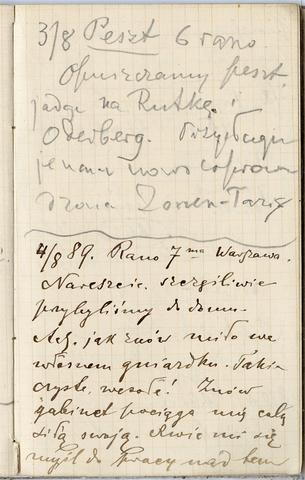 3/8 Peszt 6 rano.
Opuszczamy peszt
jadąc na Rutkę i
Oderberg. Przybywa
je nam nowo
Zonen-Tarif
4/8 89. Rano 7ma Warszawa.
Nareszcie szczęśliwie
przybyliśmy do domu.
Ach, jak znów miło we
własnem gniazdku. Takie
czyste, wesołe! Znów
gabinet pociąga mię całą
siłą swoją. Rwie mi się
myśl do pracy nad tem